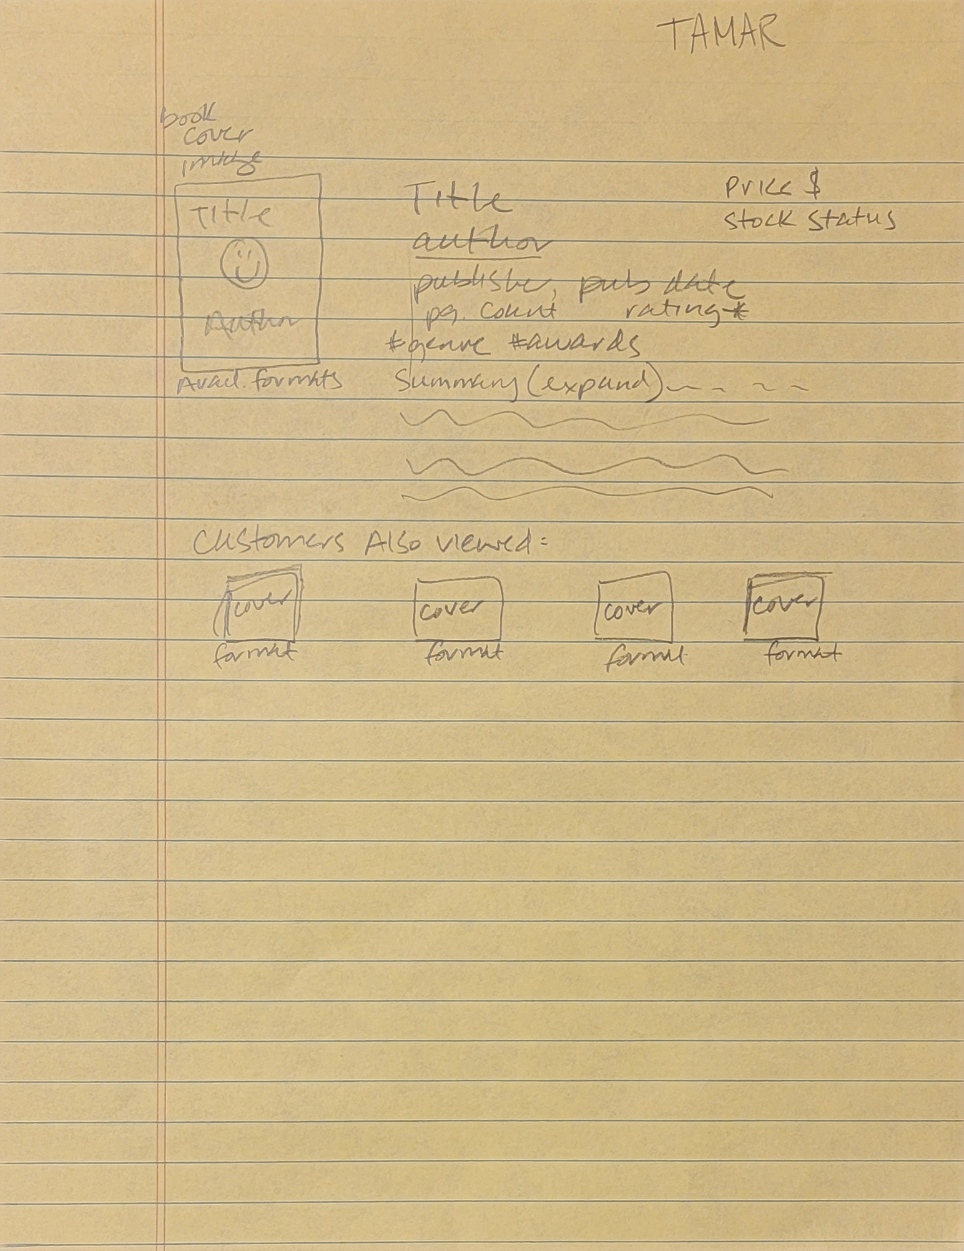 TAMAR
book
cover
image
Title
Author
Avail. formats
Title
author
publisher, pub date
pg. count rating*
#genre #awards
Summary (expand)
Price $
stock status
Customers Also viewed:
cover cover cover cover
format format format format